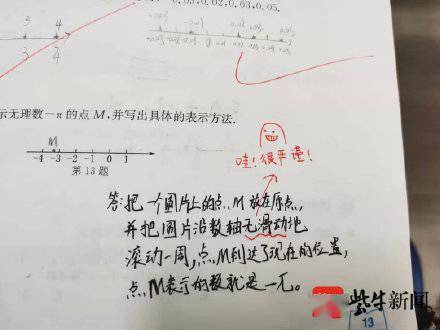 0.03, 0.02, 0.03, 0.05.
3 4
3 4
示无理数-π的点M,并写出具体的表示方法.
M
-4 -3 -2 -1 0 1
第13题
哇!很严谨!
答:把一个圆片上的点M放在原点,
并把圆片沿数轴无滑动地
滚动一周,点M到达了现在的位置,
点M表示的数就是-π。
紫牛新闻
13